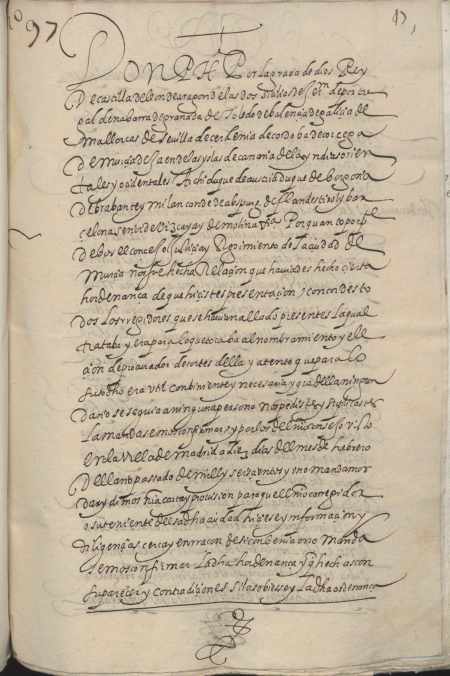 97
DON PHe Por la graçia de dios Rey
De castilla de leon de aragon de las dos seçilias de Jerm de portu
gal de nabarra de granada de Toledo de balençia de galiçia de
mallorcas de seuilla de cerdenia de cordoba de corcega
De murçia de Jaen de las yslas de canaria de las yndias orien
tales y oçidentales Archiduque de austria duque de borgoña
de brabante y milan conde de abspurg de flandes tirol y bar
çelona senor de Vizcaya y de molina &a Por quanto por pte
De bos el conçejo Justiçia y Regimiento de la çiudad de
Murçia nos fue hecha Relaçion que hauiades hecho çierta
hordenança de que hiçistes presentaçion con
dos los rregidores que se hauian allado presentes la qual
trataba y era para lo que tocaba al nombramiento y ele
çion de procurador de cortes della y atento que para lo
susodho era vtil conbiniente y necesaria y que della ningun
daño se seguia a ninguna persona nos pedistes y suplicastes
la mandasemos confirmar y por los del nuestro consejo visto
en la Villa de madrid a diez dias del mes de hebrero
Del año pasado de mill y seisçientos y uno mandamos
dar y dimos nra carta y prouision para que el nro corregidor
o su teniente desa dha çiudad hiçiese ynformaçion y
diligençias cerca y en rraçon de si conbenia o no manda
semos confirmar la dha hordenança y que hechas con
su pareçer y contradiçiones si las obiese y la dha ordenança